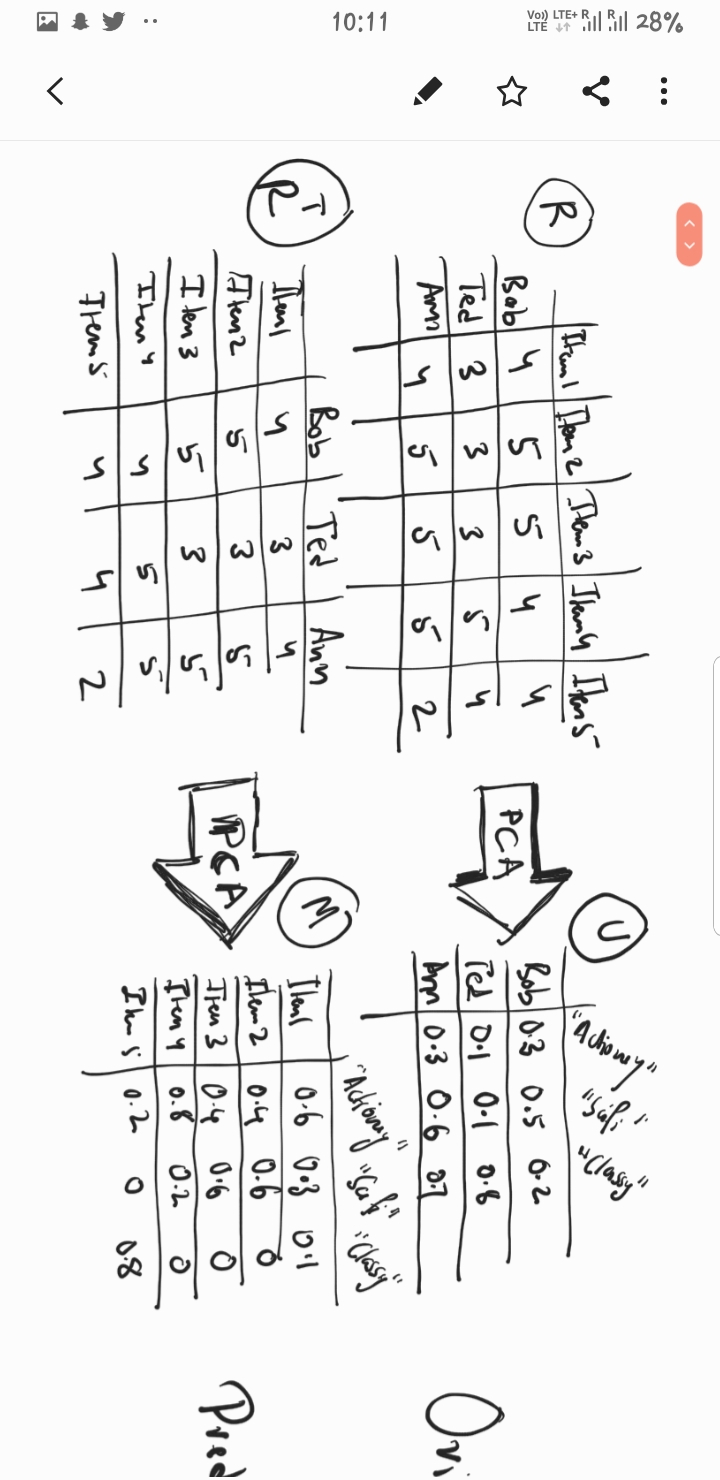 10:11
Vo)) LTE+ R R 28%
LTE
R
Item1 Item2 Item3 Item4 Item5
Bob 4 5 5 4 4
Ted 3 3 3 5 4
Ann 4 5 5 5 2
PCA
U
"Actiony" "Scifi" "Classy"
Bob 0.3 0.5 0.2
Ted 0.1 0.1 0.8
Ann 0.3 0.6 0.1
Ori
RT
Bob Ted Ann
Item1 4 3 4
Item2 5 3 5
Item3 5 3 5
Item4 4 5 5
Item5 4 4 2
PCA
M
"Actiony" "Scifi" "Classy"
Item1 0.6 0.3 0.1
Item2 0.4 0.6 0
Item3 0.4 0.6 0
Item4 0.8 0.2 0
Item5 0.2 0 0.8
Pred